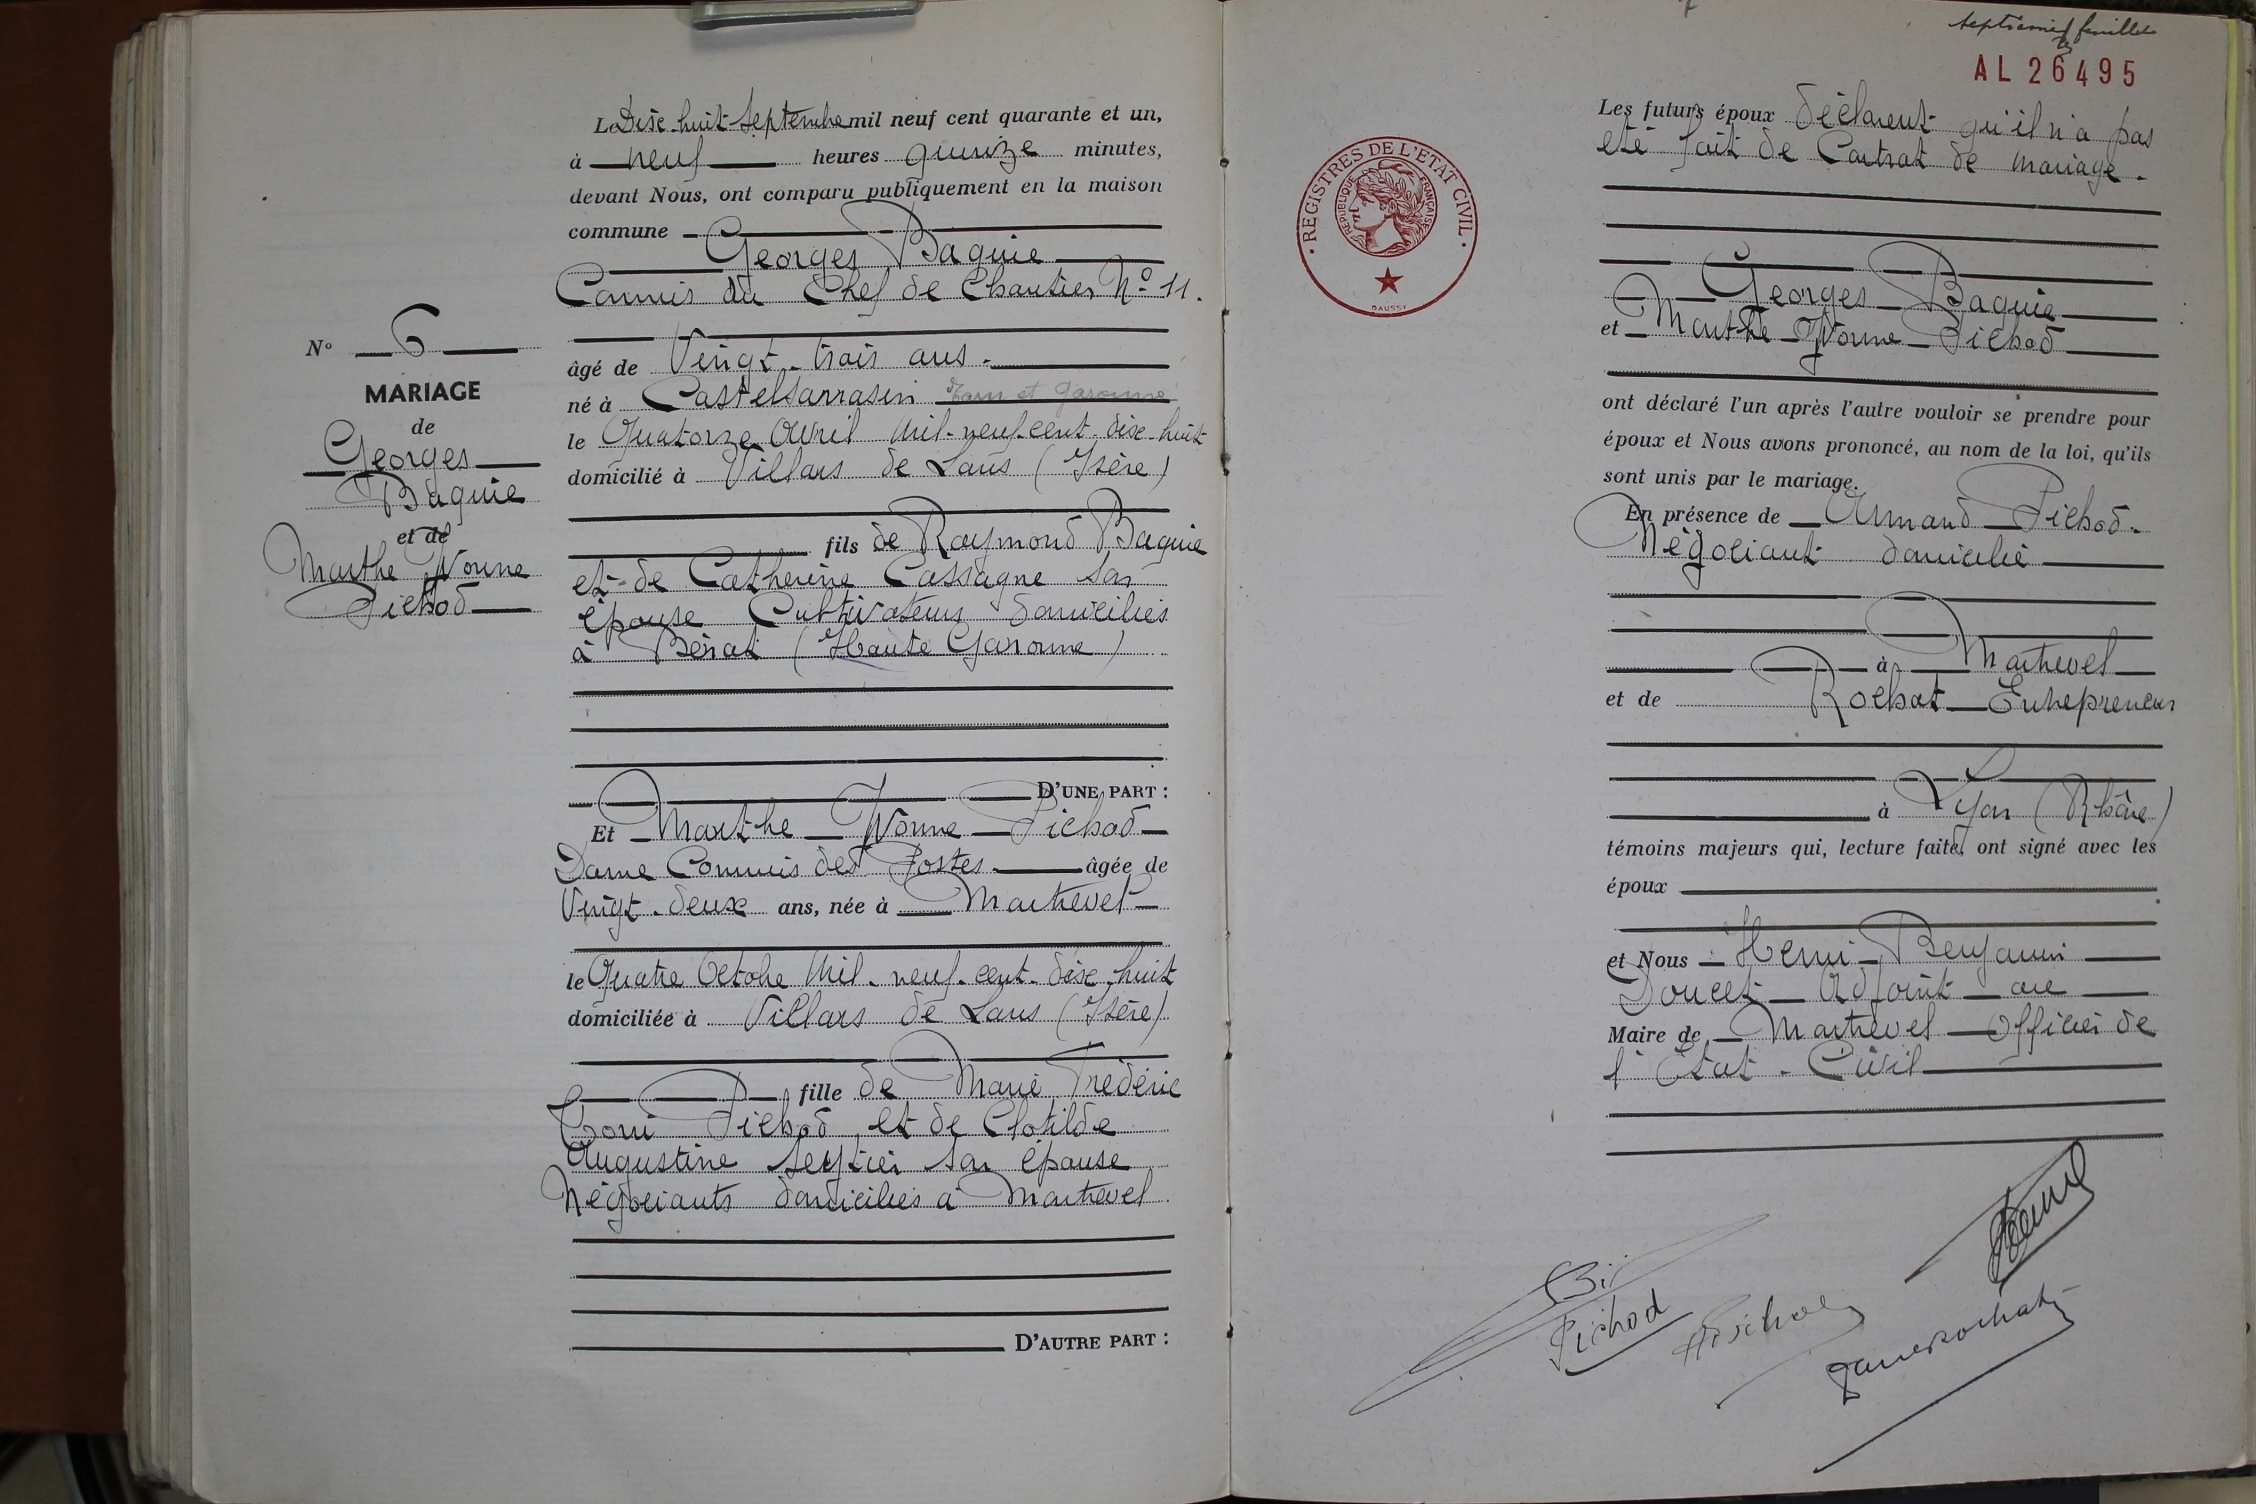 N° 6
MARIAGE
de
Georges
Baquié
et de
Marthe Yvonne
Pichod
Le Dix-huit Septembre mil neuf cent quarante et un,
à neuf heures quinze minutes,
devant Nous, ont comparu publiquement en la maison
commune
Georges Baquié
Commis du Chef de Chantier N° 11.
âgé de Vingt-trois ans.
né à Castelsarrasin Tarn et Garonne
le Quatorze Avril Mil-neuf-cent-dix-huit
domicilié à Villars de Lans (Isère)
fils de Raymond Baquié
et de Catherine Cassagne son
épouse Cultivateurs domiciliés
à Bérat (Haute Garonne)
D'UNE PART :
Et Marthe Yvonne Pichod
Dame Commis des Postes âgée de
Vingt-deux ans, née à Martrevel
le Quatre Octobre Mil-neuf-cent-dix-huit
domiciliée à Villars de Lans (Isère)
fille de Marie Frédéric
Pichod et de Clotilde
Augustine son épouse
Négociants domiciliés à Martrevel
D'AUTRE PART :
septième feuillet
AL 26495
REGISTRES DE L'ETAT CIVIL
REPUBLIQUE FRANÇAISE
DAUSSY
Les futurs époux déclarent qu'il n'a pas
été fait de Contrat de mariage.
Georges Baquié
et Marthe Yvonne Pichod
ont déclaré l'un après l'autre vouloir se prendre pour
époux et Nous avons prononcé, au nom de la loi, qu'ils
sont unis par le mariage.
En présence de Armand Pichod.
Négociant domicilié
à Martrevel
et de Rochat Entrepreneur
à Lyon (Rhône)
témoins majeurs qui, lecture faite, ont signé avec les
époux
et Nous Henri Benjamin
Doucet Adjoint au
Maire de Martrevel Officier de
l'État-Civil
Pichod